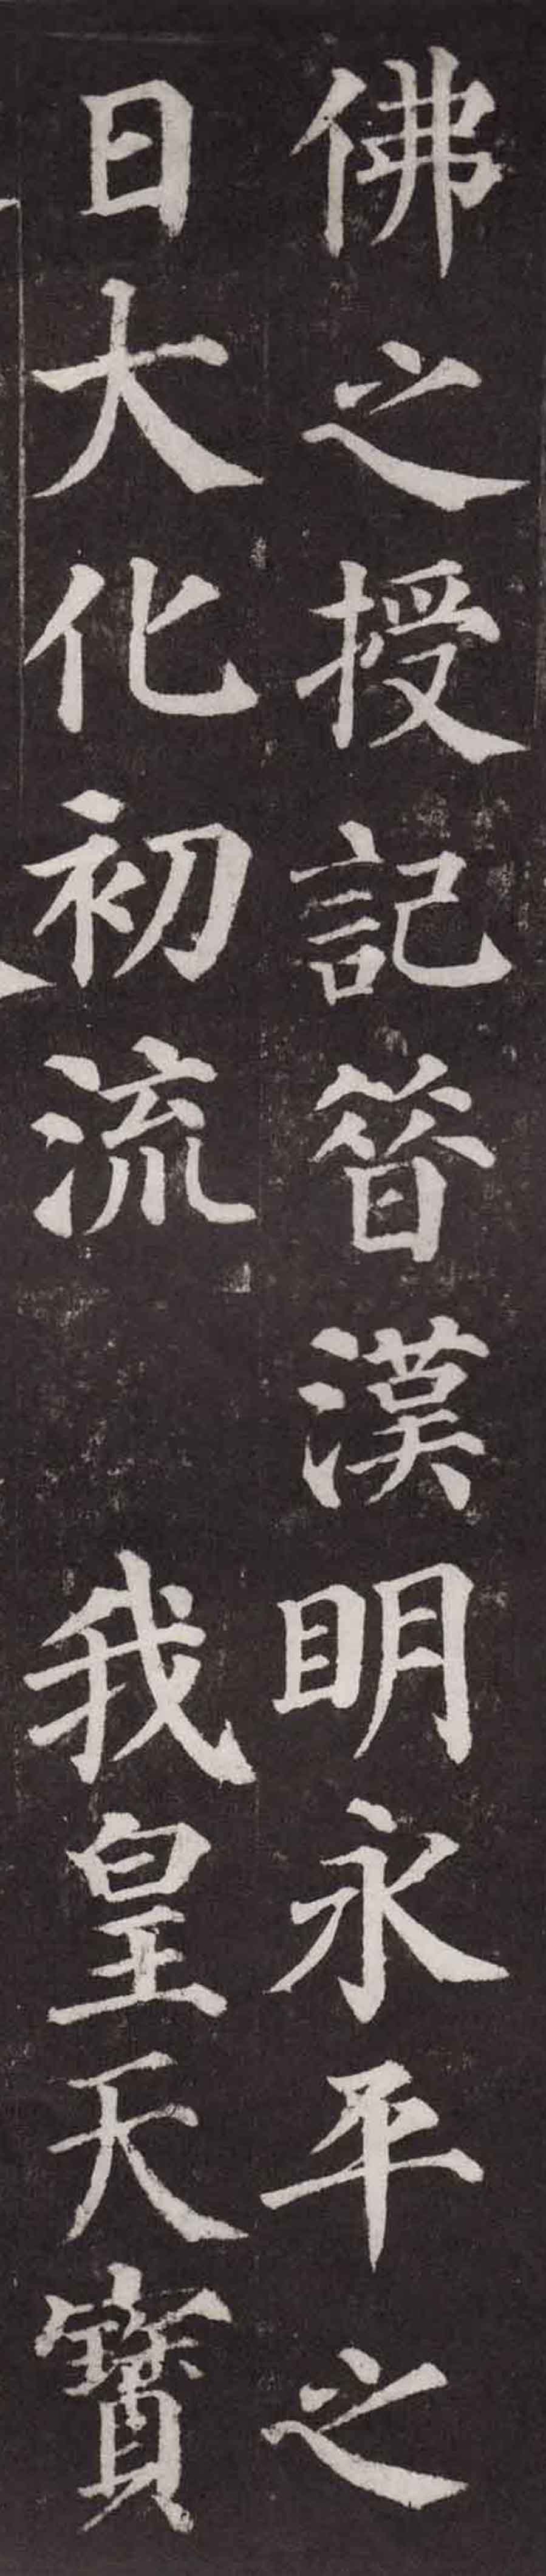 佛之授記昔漢明永平之
日大化初流　我皇天寶